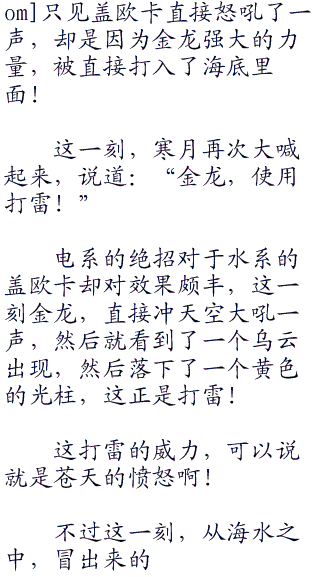 om]只见盖欧卡直接怒吼了一
声，却是因为金龙强大的力
量，被直接打入了海底里
面！
这一刻，寒月再次大喊
起来，说道：“金龙，使用
打雷！”
电系的绝招对于水系的
盖欧卡却对效果颇丰，这一
刻金龙，直接冲天空大吼一
声，然后就看到了一个乌云
出现，然后落下了一个黄色
的光柱，这正是打雷！
这打雷的威力，可以说
就是苍天的愤怒啊！
不过这一刻，从海水之
中，冒出来的